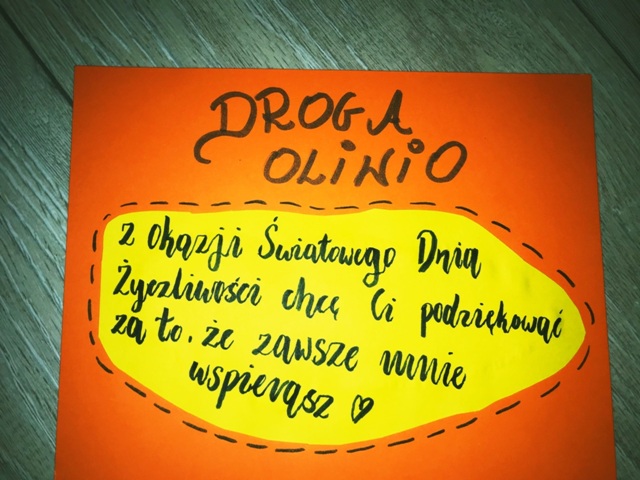 DROGA
OLINIO
Z okazji Światowego Dnia
Życzliwości chcę Ci podziękować
za to, że zawsze mnie
wspierasz ♡